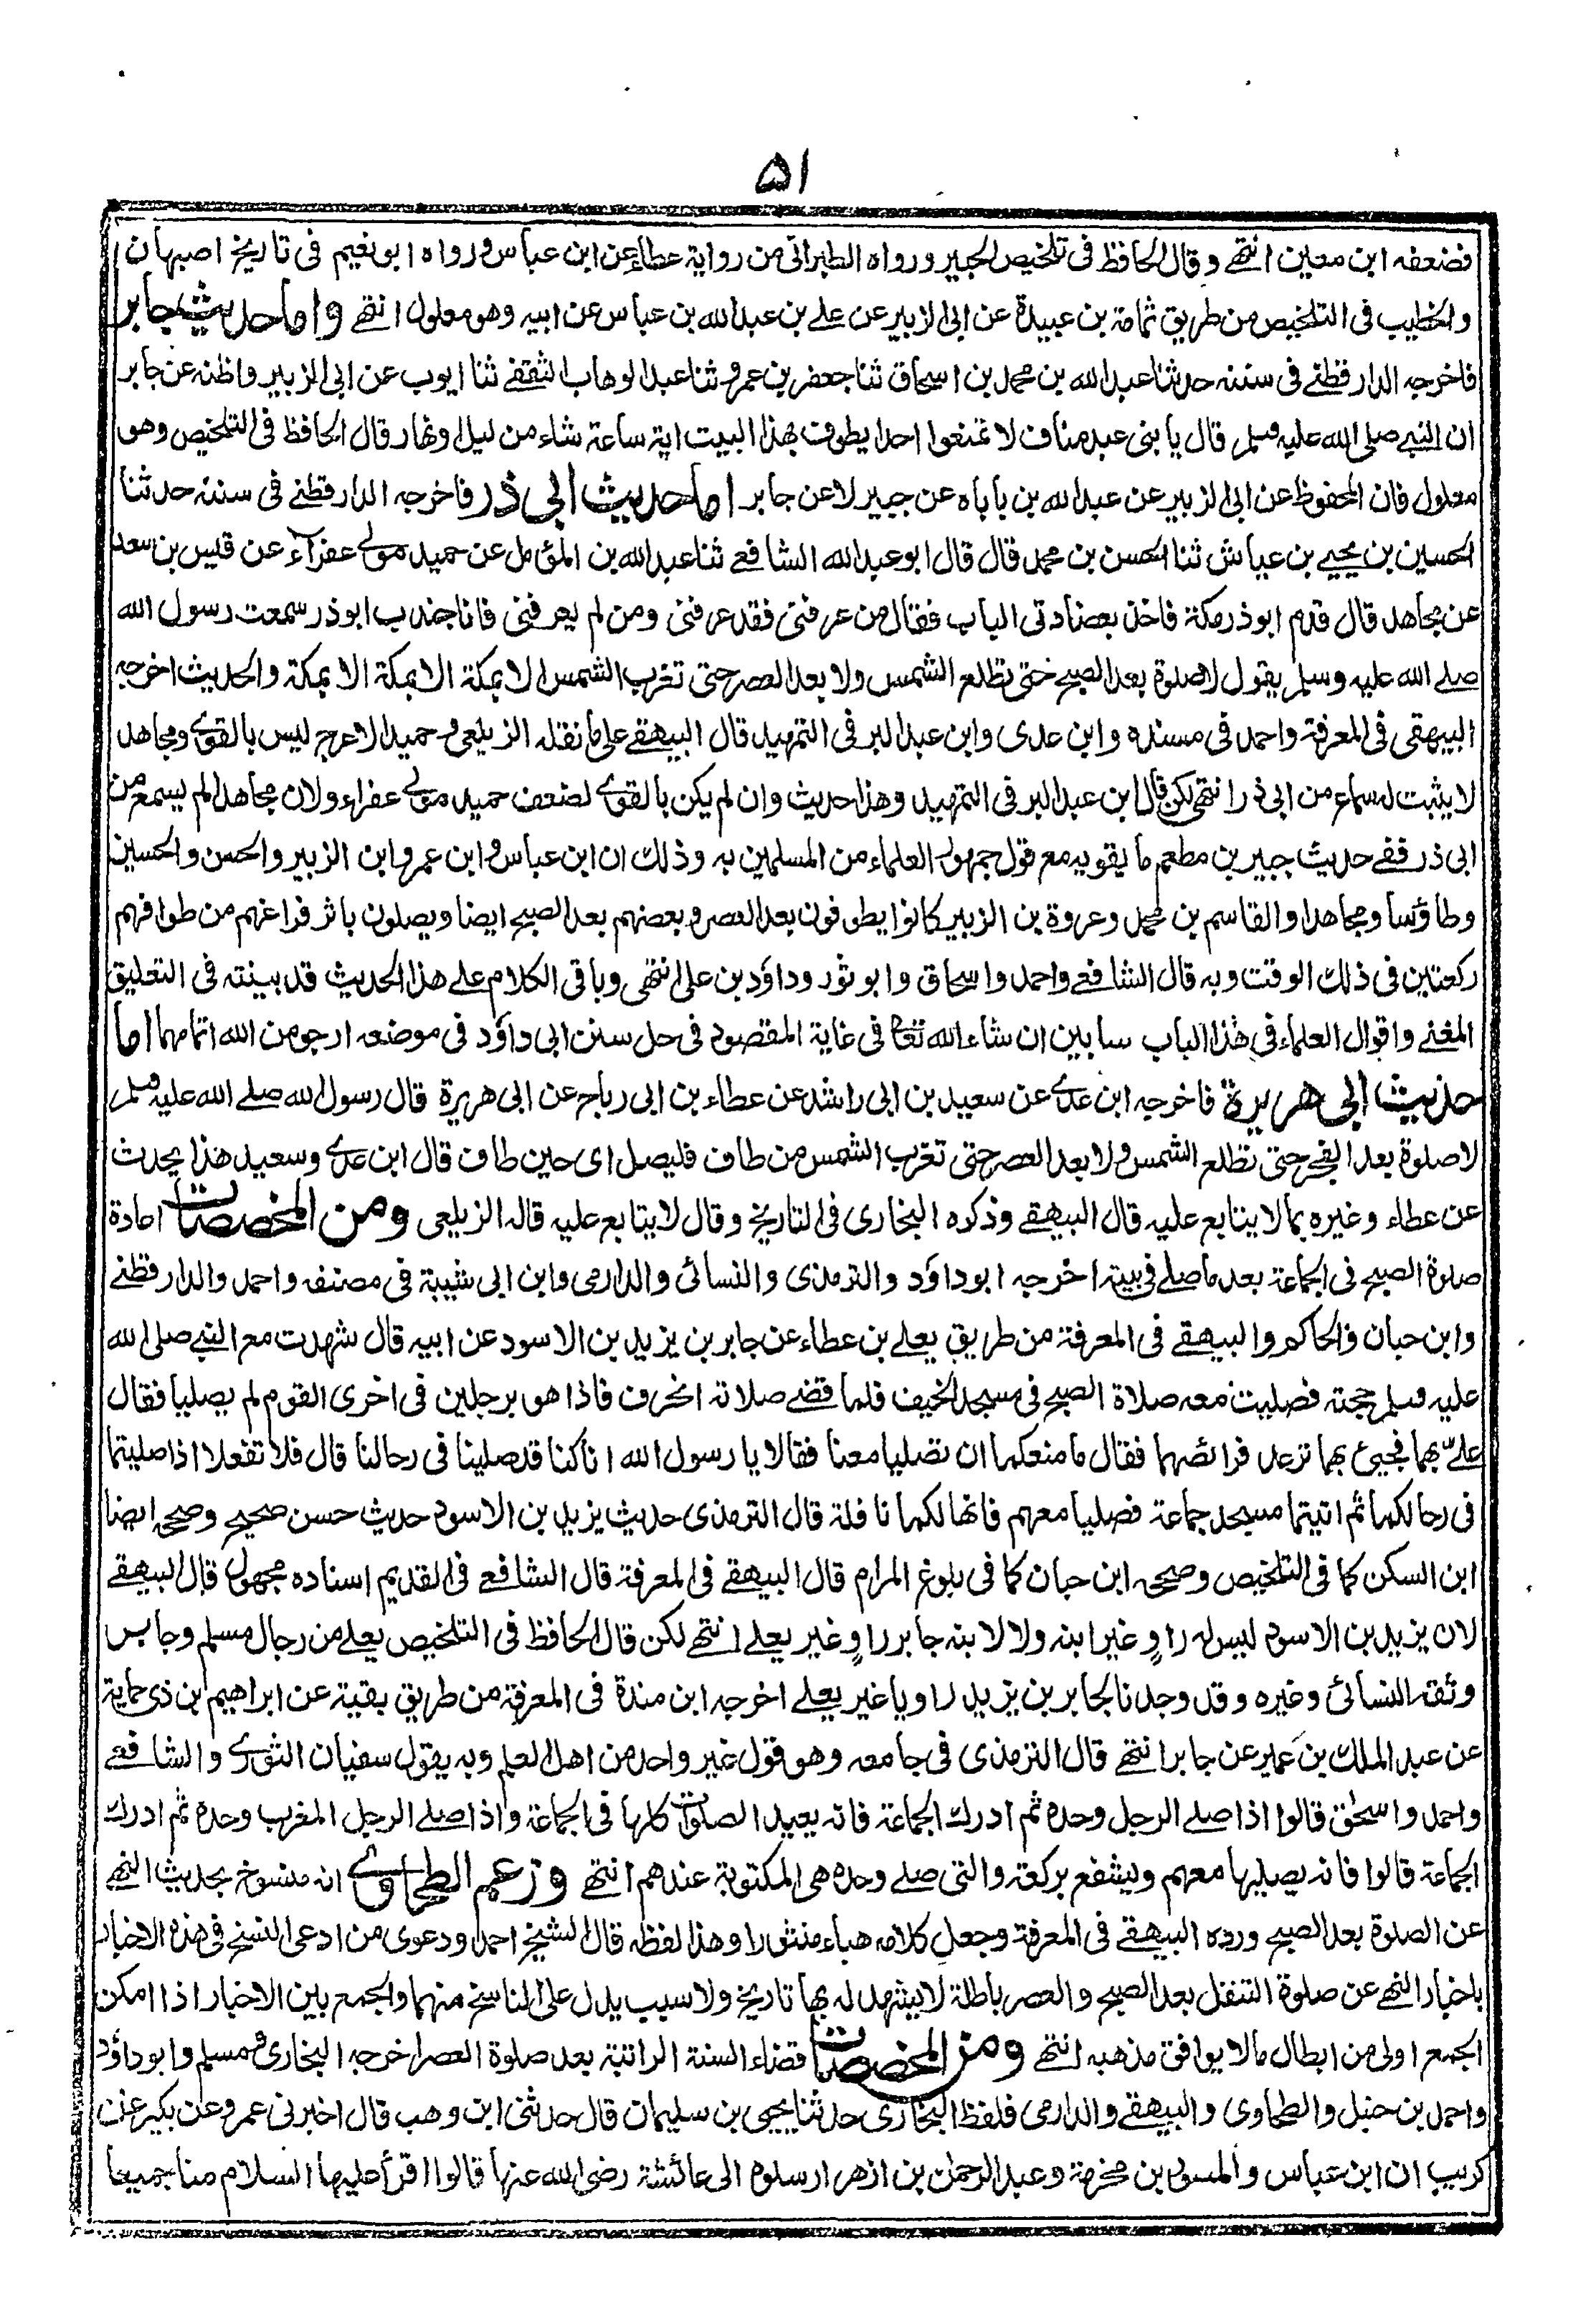 ۵۱
فضعفه ابن معين انتهے وقال الحافظ فی تلخيص الحبير ورواه الطبرانی من رواية عطاء عن ابن عباس ورواه ابو نعيم فی تاريخ اصبهان
والخطيب فی التلخيص من طريق ثمامة بن عبيدة عن ابی الزبير عن علے بن عبد الله بن عباس عن ابيه وهو معلول انتهے واما حديث جابر
فاخرجه الدارقطنے فی سننه حدثنا عبد الله بن محمد بن اسحاق ثنا جعفر بن عمرو ثنا عبد الوهاب الثقفے ثنا ايوب عن ابی الزبير واظنه عن جابر
ان النبے صلی الله عليه وسلم قال يا بنی عبد مناف لا تمنعوا احدا يطوف بهذا البيت اية ساعة شاء من ليل او نهار قال الحافظ فی التلخيص وهو
معلول فان المحفوظ عن ابی الزبير عن عبد الله بن باباه عن جبير لا عن جابر اما حديث ابی ذر فاخرجه الدارقطنے فی سننه حدثنا
الحسين بن يحيے بن عياش ثنا الحسن بن محمد قال قال ابو عبد الله الشافعے ثنا عبد الله بن المؤمل عن حميد مولے عفراء عن قيس بن سعد
عن مجاهد قال قدم ابو ذر مكة فاخذ بعضادتی الباب فقال من عرفنی فقد عرفنی ومن لم يعرفنی فانا جندب ابو ذر سمعت رسول الله
صلے الله عليه وسلم يقول لا صلوة بعد الصبح حتی تطلع الشمس ولا بعد العصر حتی تغرب الشمس الا بمكة الا بمكة الا بمكة والحديث اخرجه
البيهقی فی المعرفة واحمد فی مسنده وابن عدی وابن عبد البر فی التمهيد قال البيهقے علی ما نقله الزيلعی وحميد الاعرج ليس بالقوے ومجاهد
لا يثبت له سماع من ابی ذر انتهی لكن قال ابن عبد البر فی التمهيد وهذا حديث وان لم يكن بالقوے لضعف حميد مولے عفراء ولان مجاهدا لم يسمع من
ابی ذر ففے حديث جبير بن مطعم ما يقويه مع قول جمهور العلماء من المسلمين به وذلك ان ابن عباس وابن عمر وابن الزبير والحسن والحسين
وطاؤسا ومجاهدا والقاسم بن محمد وعروة بن الزبير كانوا يطوفون بعد العصر وبعضهم بعد الصبح ايضا ويصلون باثر فراغهم من طوافهم
ركعتين فی ذلك الوقت وبه قال الشافعے واحمد واسحاق وابو ثور وداؤد بن علی انتهی وباقی الكلام علے هذا الحديث قد بينته فی التعليق
المغنے واقوال العلماء فی هذا الباب سابين ان شاء الله تعا فی غاية المقصود فی حل سنن ابی داؤد فی موضعه ارجو من الله اتمامهما اما
حديث ابی هريرة فاخرجه ابن عدے عن سعيد بن ابی راشد عن عطاء بن ابی رباح عن ابی هريرة قال رسول الله صلے الله عليه وسلم
لا صلوة بعد الفجر حتی تطلع الشمس ولا بعد العصر حتی تغرب الشمس من طاف فليصل ای حين طاف قال ابن عدے وسعيد هذا يحدث
عن عطاء وغيره بما لا يتابع عليه قال البيهقے وذكره البخاری فی التاريخ وقال لا يتابع عليه قاله الزيلعی ومن المخصصات اعادة
صلوة الصبح فی الجماعة بعد ما صلے فی بيته اخرجه ابو داؤد والترمذی والنسائی والدارمی وابن ابی شيبة فی مصنفه واحمد والدارقطنے
وابن حبان والحاكم والبيهقے فی المعرفة من طريق يعلے بن عطاء عن جابر بن يزيد بن الاسود عن ابيه قال شهدت مع النبے صلی الله
عليه وسلم حجته فصليت معه صلاة الصبح فی مسجد الخيف فلما قضے صلاته انحرف فاذا هو برجلين فی اخری القوم لم يصليا فقال
علیّ بهما فجیء بهما ترعد فرائصهما فقال ما منعكما ان تصليا معنا فقالا يا رسول الله انا كنا قد صلينا فی رحالنا قال فلا تفعلا اذا صليتما
فی رحالكما ثم اتيتما مسجد جماعة فصليا معهم فانها لكما نافلة قال الترمذی حديث يزيد بن الاسود حديث حسن صحيح وصححه ايضا
ابن السكن كما فی التلخيص وصححه ابن حبان كما فی بلوغ المرام قال البيهقے فی المعرفة قال الشافعے فی القديم اسناده مجهول قال البيهقے
لان يزيد بن الاسود ليس له راوٍ غير ابنه ولا لابنه جابر راوٍ غير يعلے انتهے لكن قال الحافظ فی التلخيص يعلے من رجال مسلم وجابر
وثقه النسائی وغيره وقد وجدنا لجابر بن يزيد راويا غير يعلے اخرجه ابن مندة فی المعرفة من طريق بقية عن ابراهيم بن ذی حماية
عن عبد الملك بن عمير عن جابر انتهے قال الترمذی فی جامعه وهو قول غير واحد من اهل العلم وبه يقول سفيان الثورے والشافعے
واحمد واسحٰق قالوا اذا صلے الرجل وحده ثم ادرك الجماعة فانه يعيد الصلوات كلها فی الجماعة واذا صلے الرجل المغرب وحده ثم ادرك
الجماعة قالوا فانه يصليها معهم ويشفع بركعة والتی صلے وحده هی المكتوبة عندهم انتهے وزعم الطحاوے انه منسوخ بحديث النهے
عن الصلوة بعد الصبح ورده البيهقے فی المعرفة وجعل كلامه هباء منثورا وهذا لفظه قال الشيخ احمد ودعوی من ادعی النسخ فی هذه الاخبار
باخبار النهے عن صلوة التنفل بعد الصبح والعصر باطلة لا يشهد له بها تاريخ ولا سبب يدل علی الناسخ منهما والجمع بين الاخبار اذا امكن
الجمع اولی من ابطال ما لا يوافق مذهبه انتهے ومن المخصصات قضاء السنة الراتبة بعد صلوة العصر اخرجه البخاری ومسلم وابو داؤد
واحمد بن حنبل والطحاوی والبيهقے والدارمی فلفظ البخاری حدثنا يحيی بن سليمان قال حدثنی ابن وهب قال اخبرنی عمرو عن بكير عن
كريب ان ابن عباس والمسور بن مخرمة وعبد الرحمٰن بن ازهر ارسلوه الی عائشة رضی الله عنها قالوا اقرأ عليها السلام منا جميعا